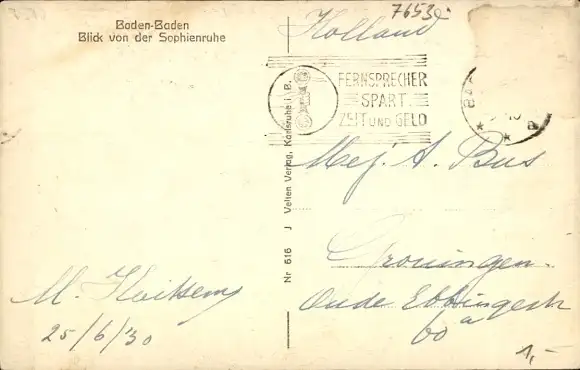 Baden-Baden
Blick von der Sophienruhe
Holland
7653
FERNSPRECHER
SPART
ZEIT UND GELD
Nr 616 J Velten Verlag, Karlsruhe i. B.
Mej. A. Bus
Groningen.
Oude Ebbingestr
60 a
M.
25/6/'30
1,-